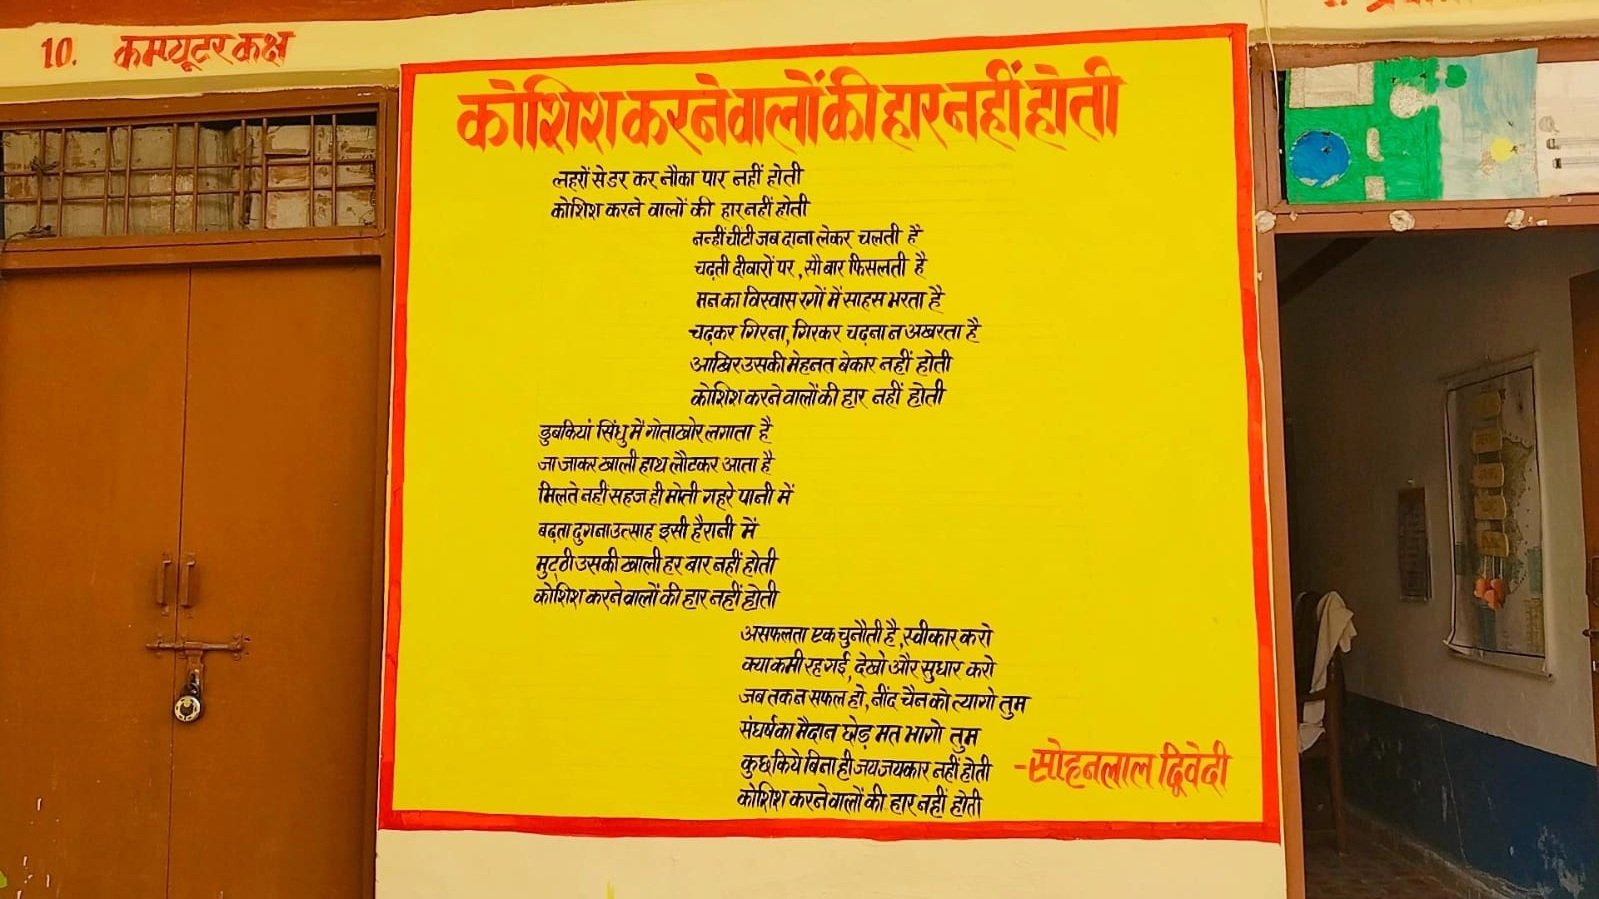 10. कम्प्यूटर कक्ष
कोशिश करने वालों की हार नहीं होती
लहरों से डर कर नौका पार नहीं होती
कोशिश करने वालों की हार नहीं होती
नन्हीं चींटी जब दाना लेकर चलती है
चढ़ती दीवारों पर, सौ बार फिसलती है
मन का विस्वास रगों में साहस भरता है
चढ़कर गिरना, गिरकर चढ़ना न अखरता है
आखिर उसकी मेहनत बेकार नहीं होती
कोशिश करने वालों की हार नहीं होती
डुबकियां सिंधु में गोताखोर लगाता है
जा जाकर खाली हाथ लौटकर आता है
मिलते नहीं सहज ही मोती गहरे पानी में
बढ़ता दुगना उत्साह इसी हैरानी में
मुट्ठी उसकी खाली हर बार नहीं होती
कोशिश करने वालों की हार नहीं होती
असफलता एक चुनौती है, स्वीकार करो
क्या कमी रह गई, देखो और सुधार करो
जब तक न सफल हो, नींद चैन को त्यागो तुम
संघर्ष का मैदान छोड़ मत भागो तुम
कुछ किये बिना ही जय जयकार नहीं होती
कोशिश करने वालों की हार नहीं होती
-सोहनलाल द्विवेदी